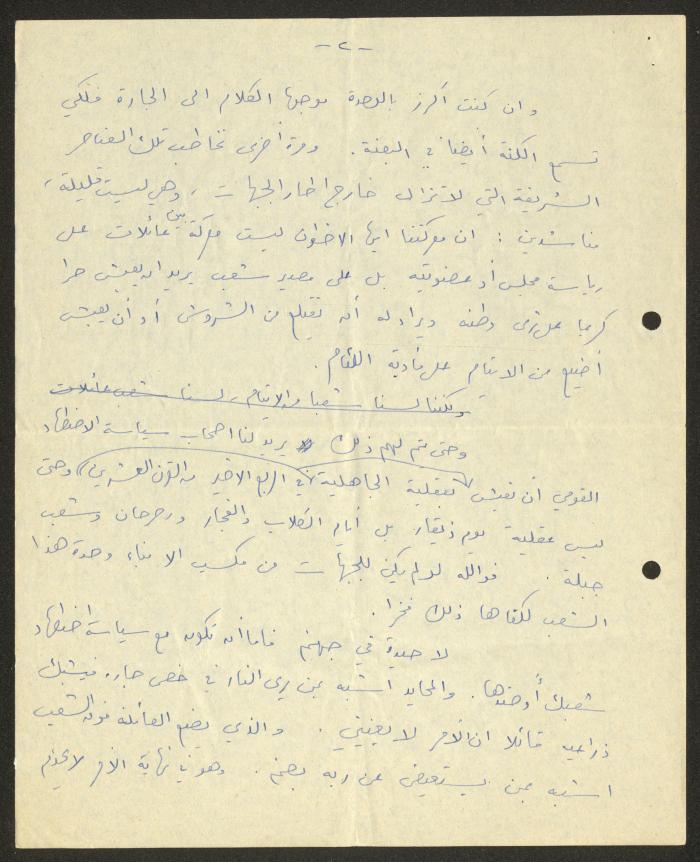 - ٢ -
وان كنت أكرز بالوحدة موجها الكلام الى الجارة فلكي
تسمع الكنة أيضا في البعنة. ومرة أخرى نخاطب تلك العناصر
الشريفة التي لا تزال خارج اطار الجبهات، وهي ليست قليلة،
مناشدين: ان معركتنا ايها الاخوان ليست معركة بين عائلات على
رياسة مجلس أو عضويته بل على مصير شعب يريد ان يعيش حرا
كريما على ثرى وطنه ويراد له أن يقتلع من الشروش أو أن يعيش
أضيع من الايتام على مأدبة اللئام.
ولكننا لسنا شعبا من الايتام، لسنا شعب عائلات
وحتى يتم لهم ذلك يريد لنا اصحاب سياسة الاضطهاد
القومي أن نعيش بعقلية الجاهلية في الربع الاخير من القرن العشرين، وحتى
ليس عقلية يوم ذيقار بل أيام الكلاب والفجار ورحرحان وشعب
جبلة. فوالله لو لم يكن للجبهات من مكسب الا بناء وحدة هذا
الشعب لكفاها ذلك فخرا.
لا حيدة في جهنم فاما أن تكون مع سياسة اضطهاد
شعبك أو ضدها. والمحايد اشبه بمن يرى النار في خص جاره فيشبك
ذراعيه قائلا ان الأمر لا يعنيني. والذي يضع العائلة فوق الشعب
اشبه بمن يستعيض عن ربه بصنم. وهو في نهاية الأمر لا يخدم